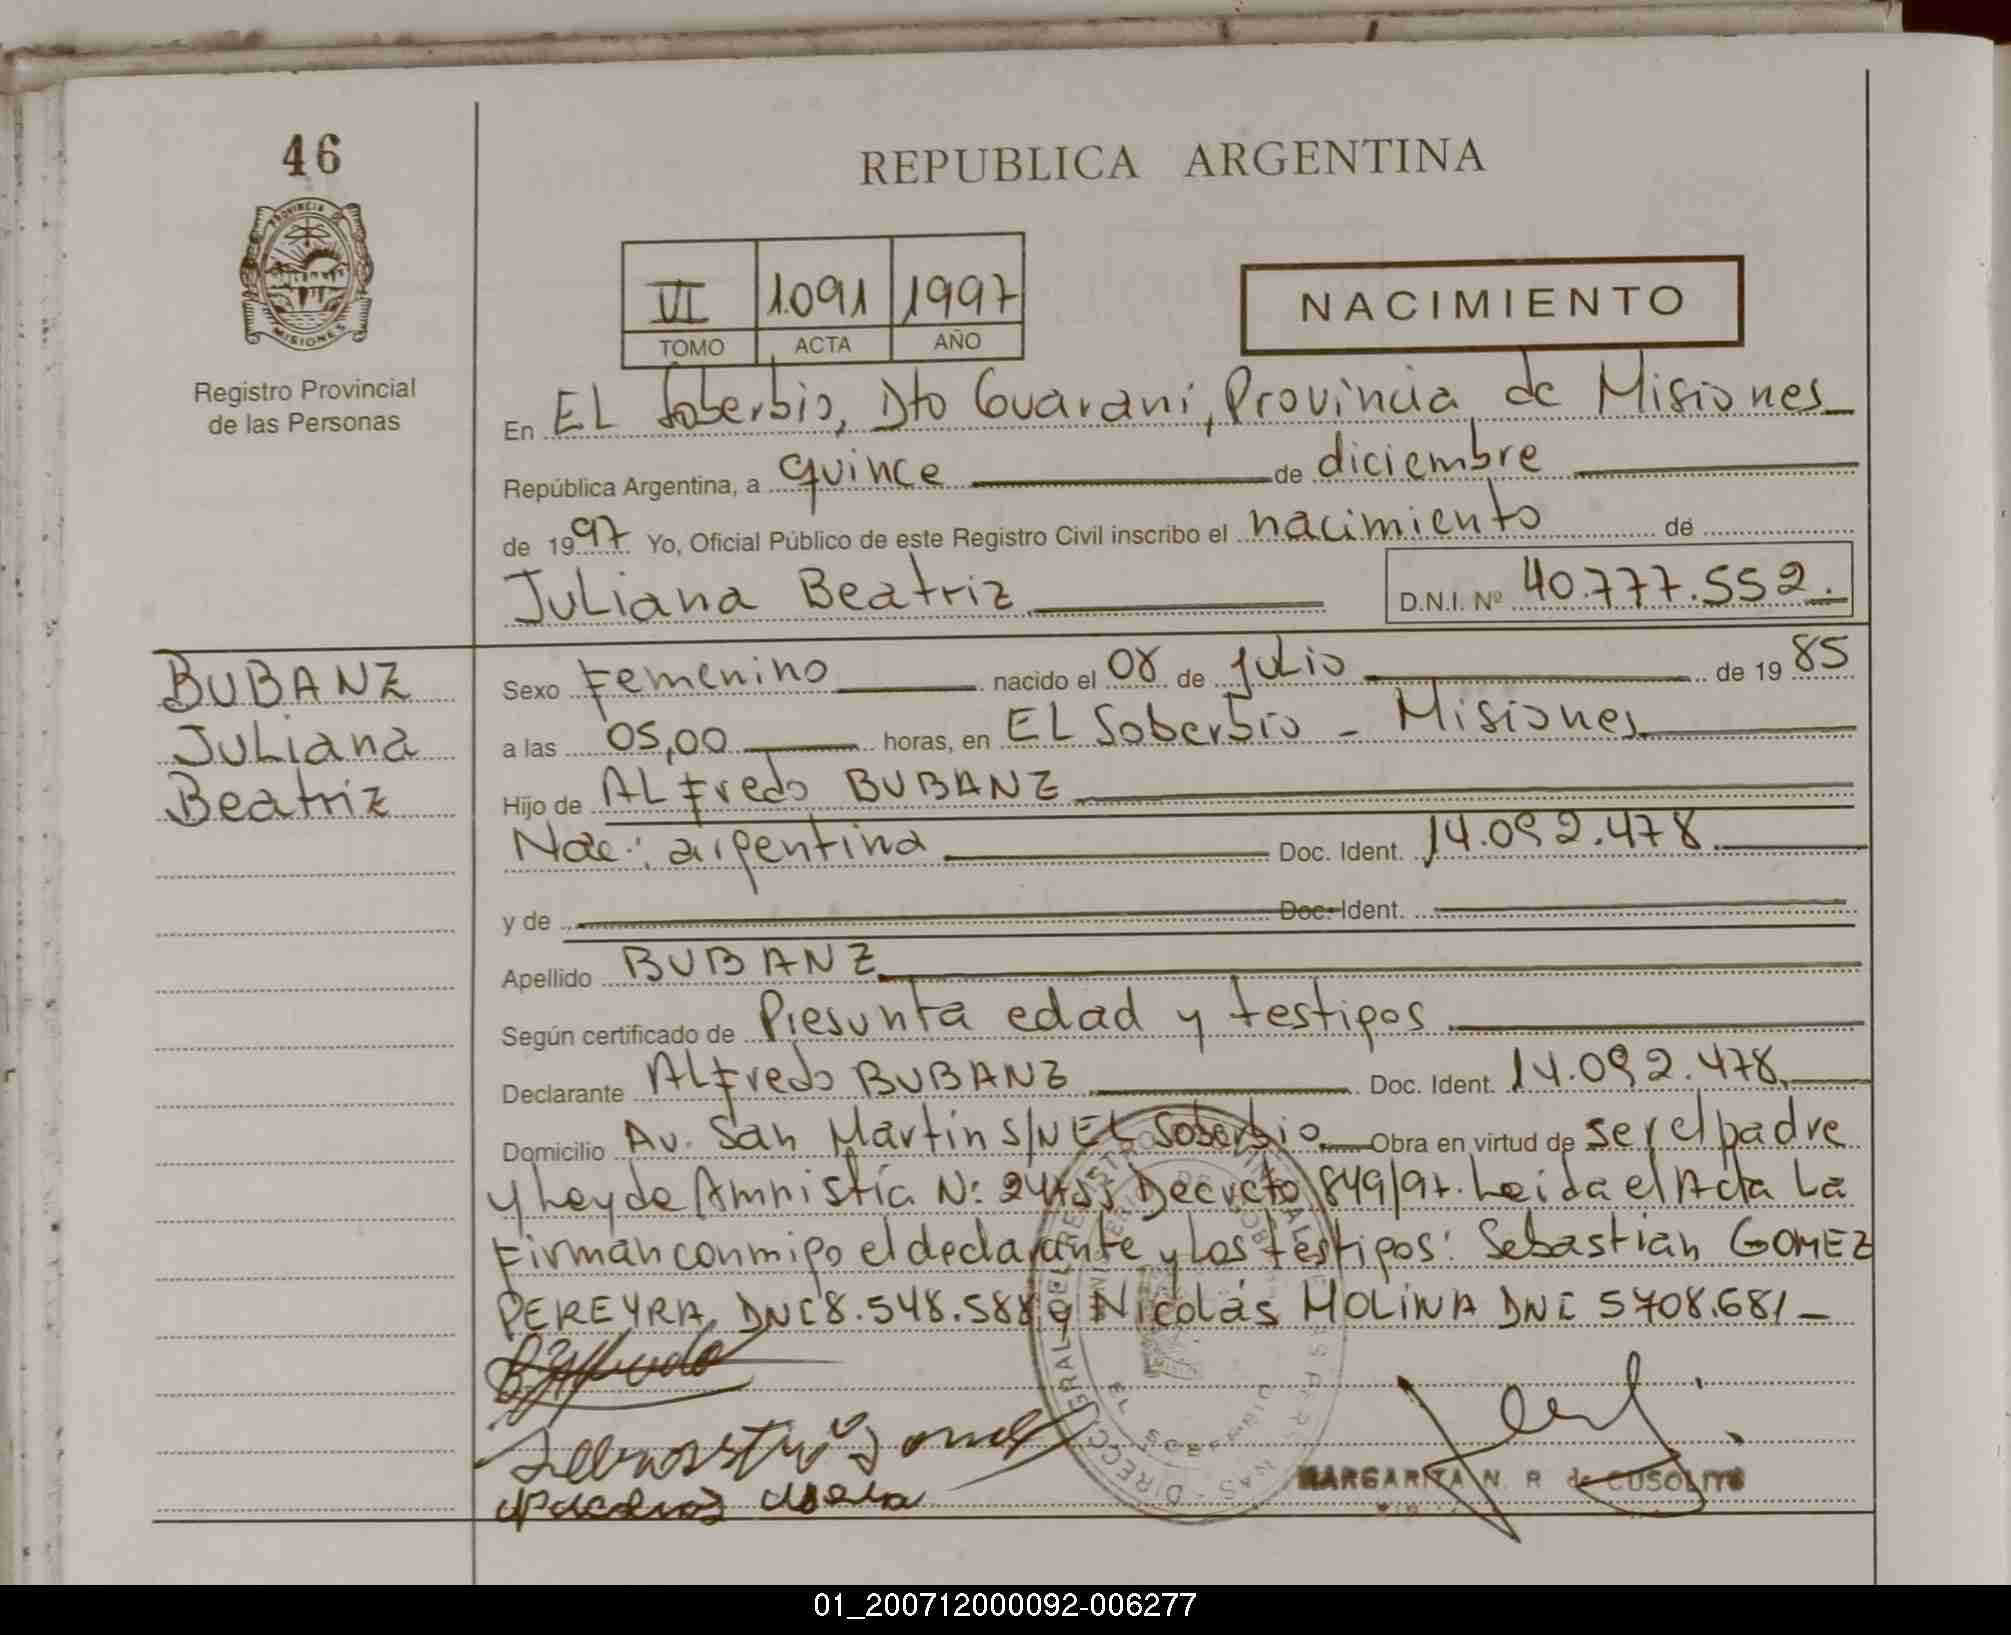 46
REPUBLICA ARGENTINA
PROVINCIA DE
MISIONES
Registro Provincial
de las Personas
VI 1.091 1997
TOMO ACTA AÑO
NACIMIENTO
En EL Soberbio, Dto Guaraní, Provincia de Misiones
República Argentina, a quince de diciembre
de 1997 Yo, Oficial Público de este Registro Civil inscribo el nacimiento de
Juliana Beatriz D.N.I. Nº 40.777.552.
BUBANZ
Juliana
Beatriz
Sexo Femenino nacido el 08 de Julio de 1985
a las 05,00 horas, en EL Soberbio - Misiones
Hijo de ALFredo BUBANZ
Nac: argentina Doc. Ident. 14.092.478
y de Doc. Ident.
Apellido BUBANZ
Según certificado de Presunta edad y testigos
Declarante ALFredo BUBANZ Doc. Ident. 14.092.478
Domicilio Av. San Martín S/N EL Soberbio Obra en virtud de ser el padre
y Ley de Amnistía Nº Decreto 849/97. Leida el Acta La
Firman conmigo el declarante y Los testigos: Sebastián GOMEZ
PEREYRA, DNI 8.548.588 y Nicolás MOLINA DNI 5708.681-
MARGARITA N. R. de CUSOLITO
EL SOBERBIO
01_200712000092-006277